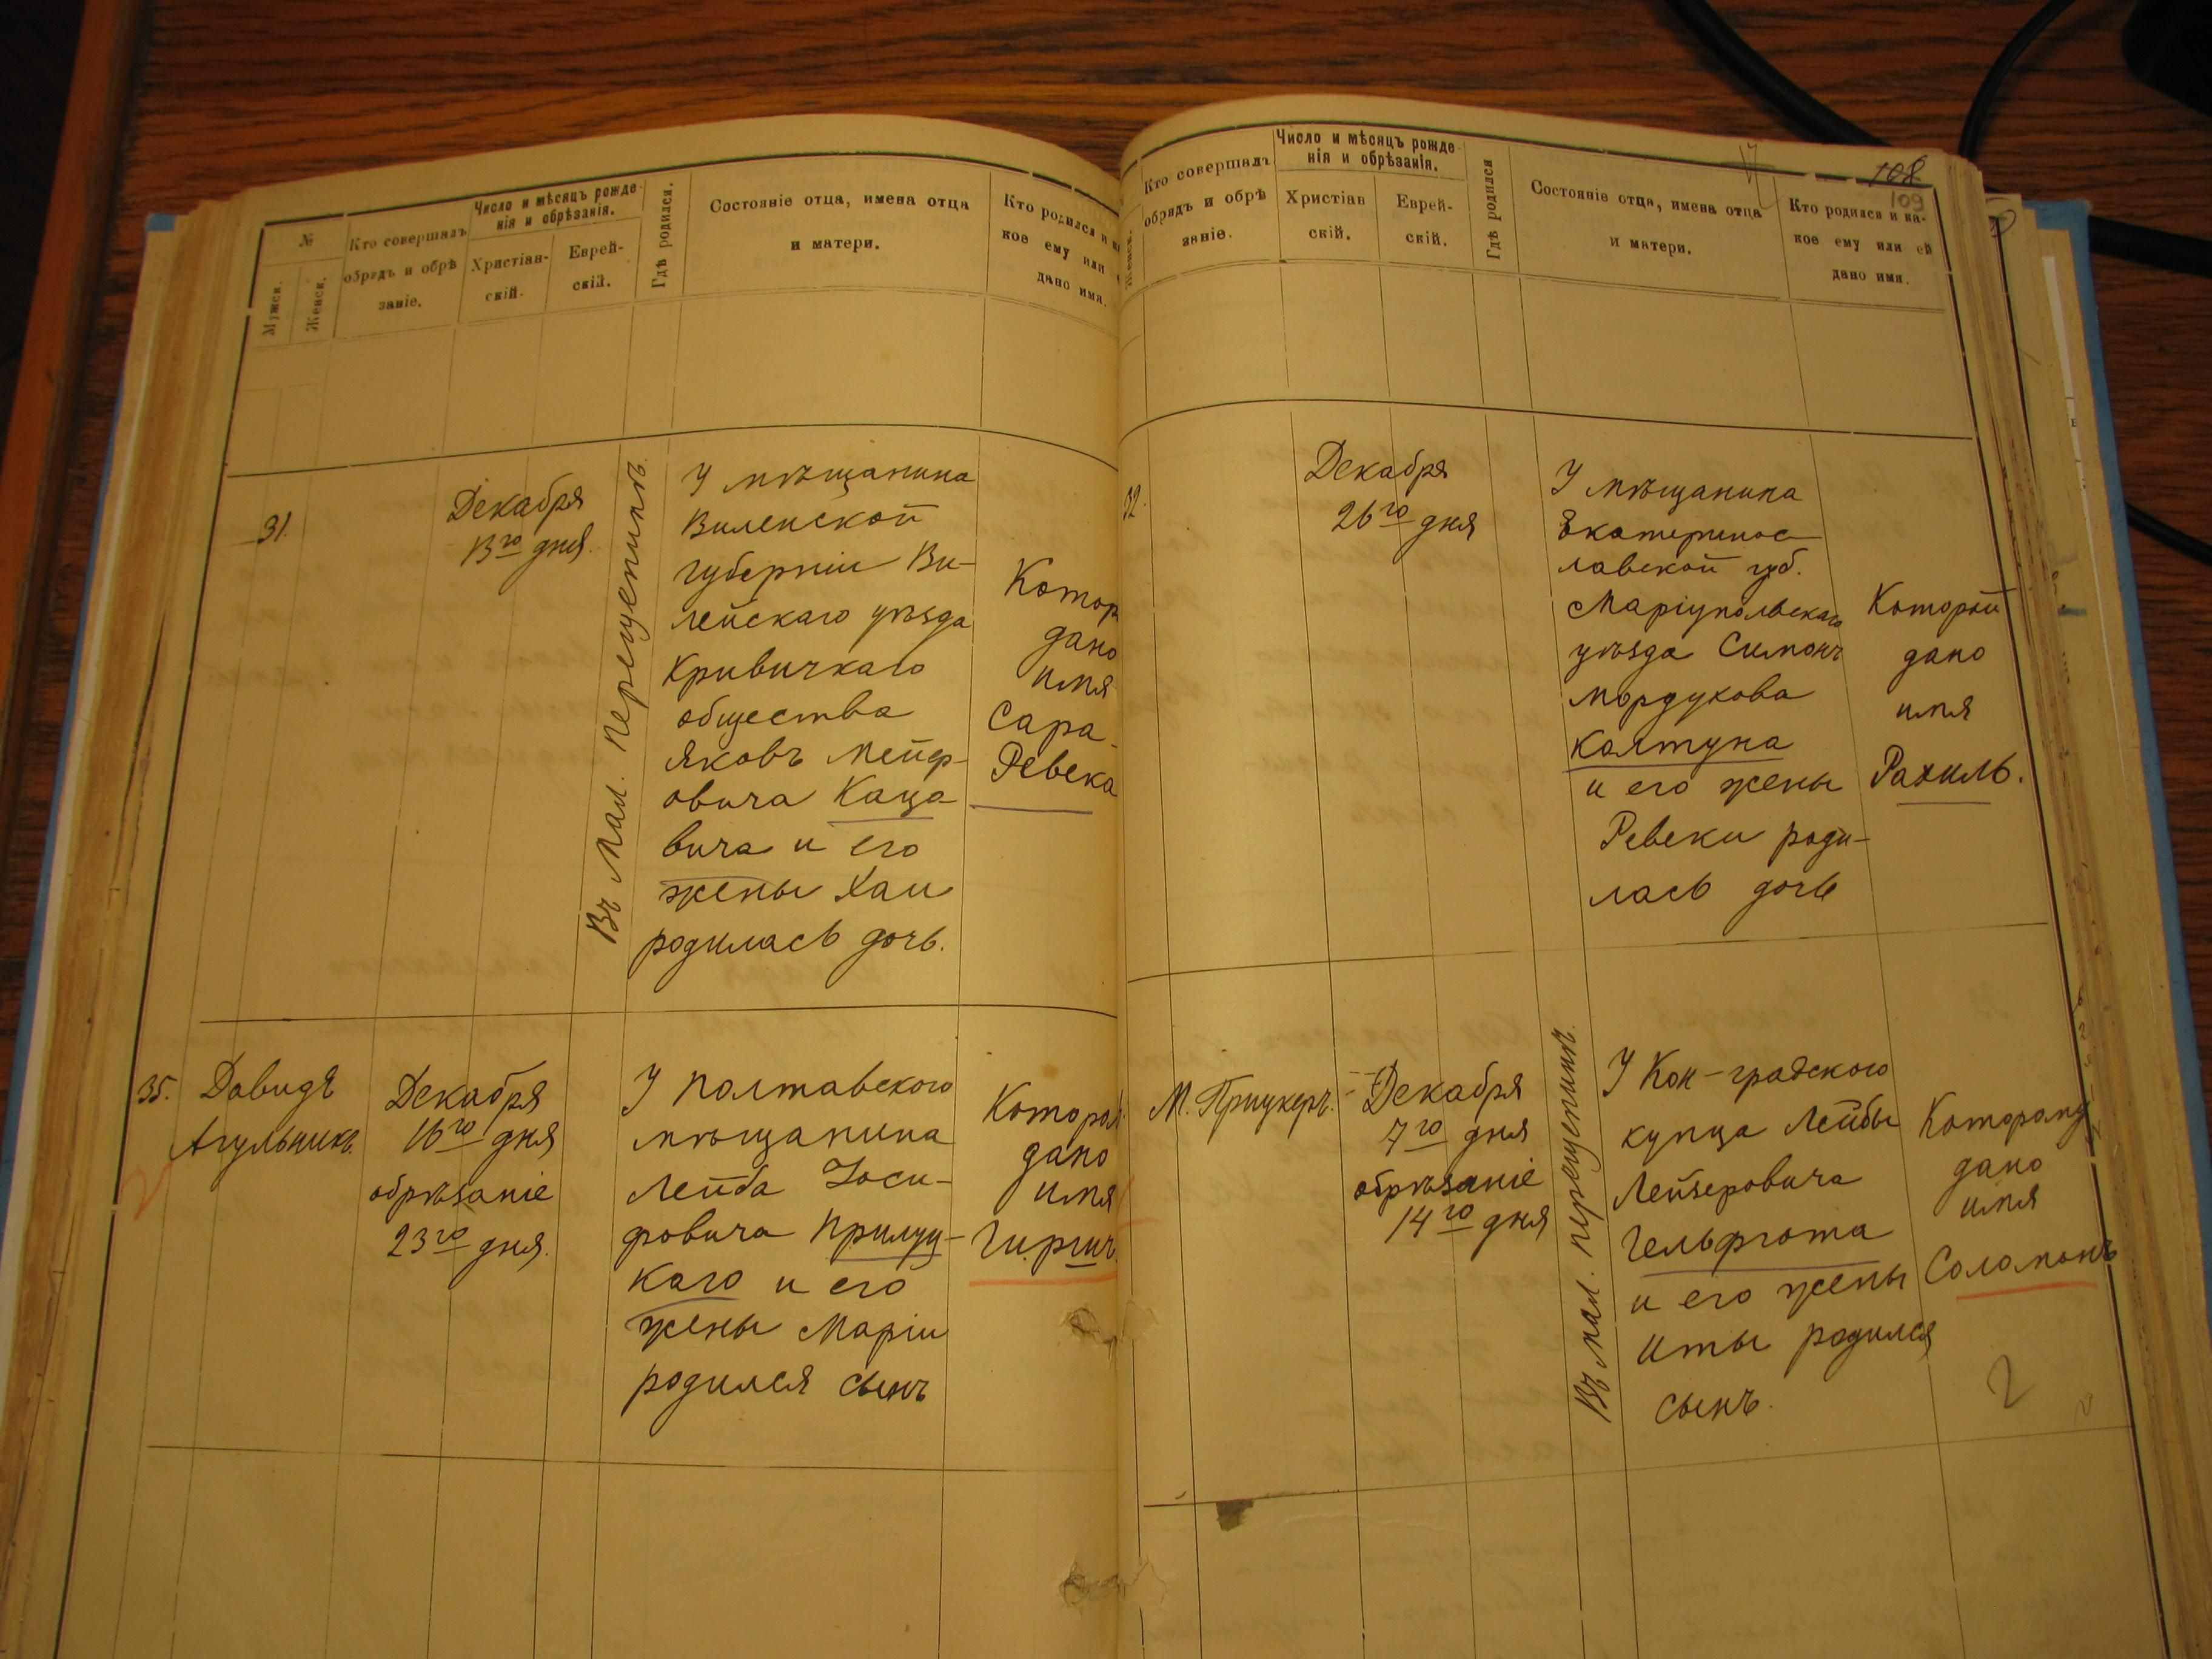 №
Мужск.
Женск.
Кто совершалъ
обрядъ и обрѣ
заніе.
Число и мѣсяцъ рожде-
нія и обрѣзанія.
Христіан-
скій.
Еврей-
скій.
Гдѣ родился.
Состояніе отца, имена отца
и матери.
Кто родился и
кое ему или
дано имя.
31.
Декабря
13го дня.
Въ мал. Перещепинѣ.
У мѣщанина
Виленской
губерніи Ви-
лейскаго уѣзда
Кривичкаго
общества
Яковъ Мейер-
овича Каца-
вича и его
жены Хаи
родилась дочь.
Котор
дано
имя
Сара-
Ревека
35.
Давидъ
Агульникъ.
Декабря
16го дня
обрѣзаніе
23го дня.
У Полтавского
мѣщанина
Лейба Іоси-
фовича Прилуц-
каго и его
жены Маріи
родился сынъ
Которо
дано
имя
Гиршъ
108
109
Женск.
Кто совершалъ
обрядъ и обрѣ
заніе.
Число и мѣсяцъ рожде
нія и обрѣзанія.
Христіан
скій.
Еврей-
скій.
Гдѣ родился
Состояніе отца, имена отца
и матери.
Кто родился и ка-
кое ему или ей
дано имя.
32.
Декабря
26го дня
У мѣщанина
Екатеринос-
лавской губ.
Маріупольскаго
уѣзда Симонъ
Мордухова
Колтуна
и его жены
Ревеки роди-
лась дочь
Которой
дано
имя
Рахиль.
М. Прицкеръ.
Декабря
7го дня
обрѣзаніе
14го дня
Въ мал. Перещепинѣ.
У Кон-градского
купца Лейбы
Лейзеровича
Гельфгота
и его жены
Иты родился
сынъ.
Которому
дано
имя
Соломонъ
2